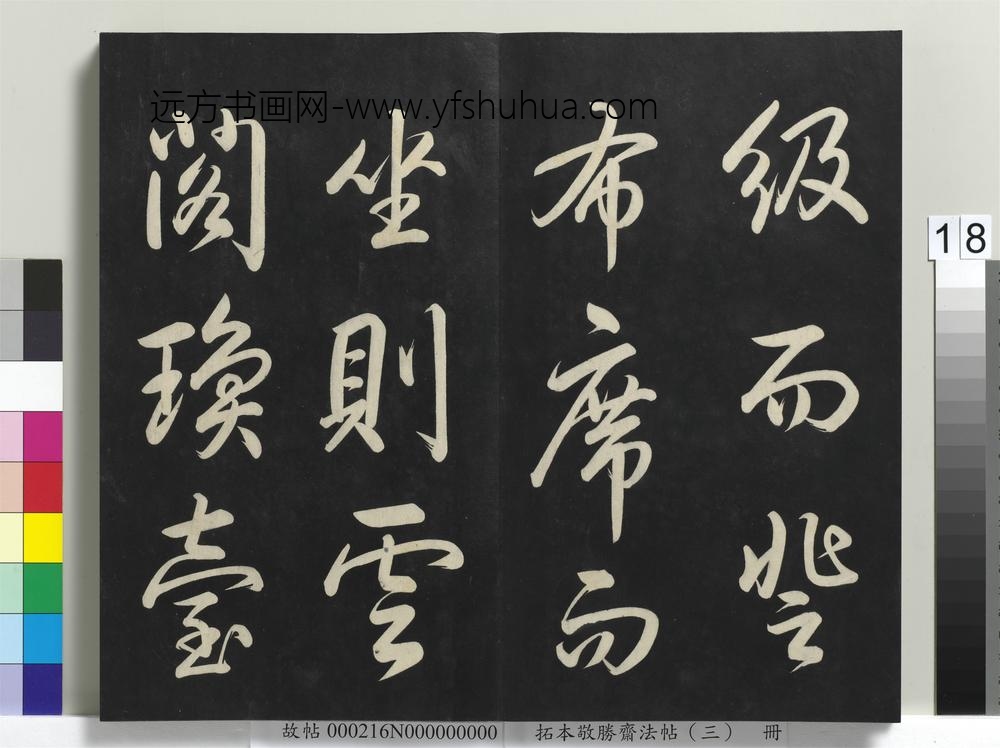 远方书画网-www.yfshuhua.com
級而登
布席而
坐則雲
閣瓊臺
18
故帖 000216N000000000 拓本敬勝齋法帖（三） 冊